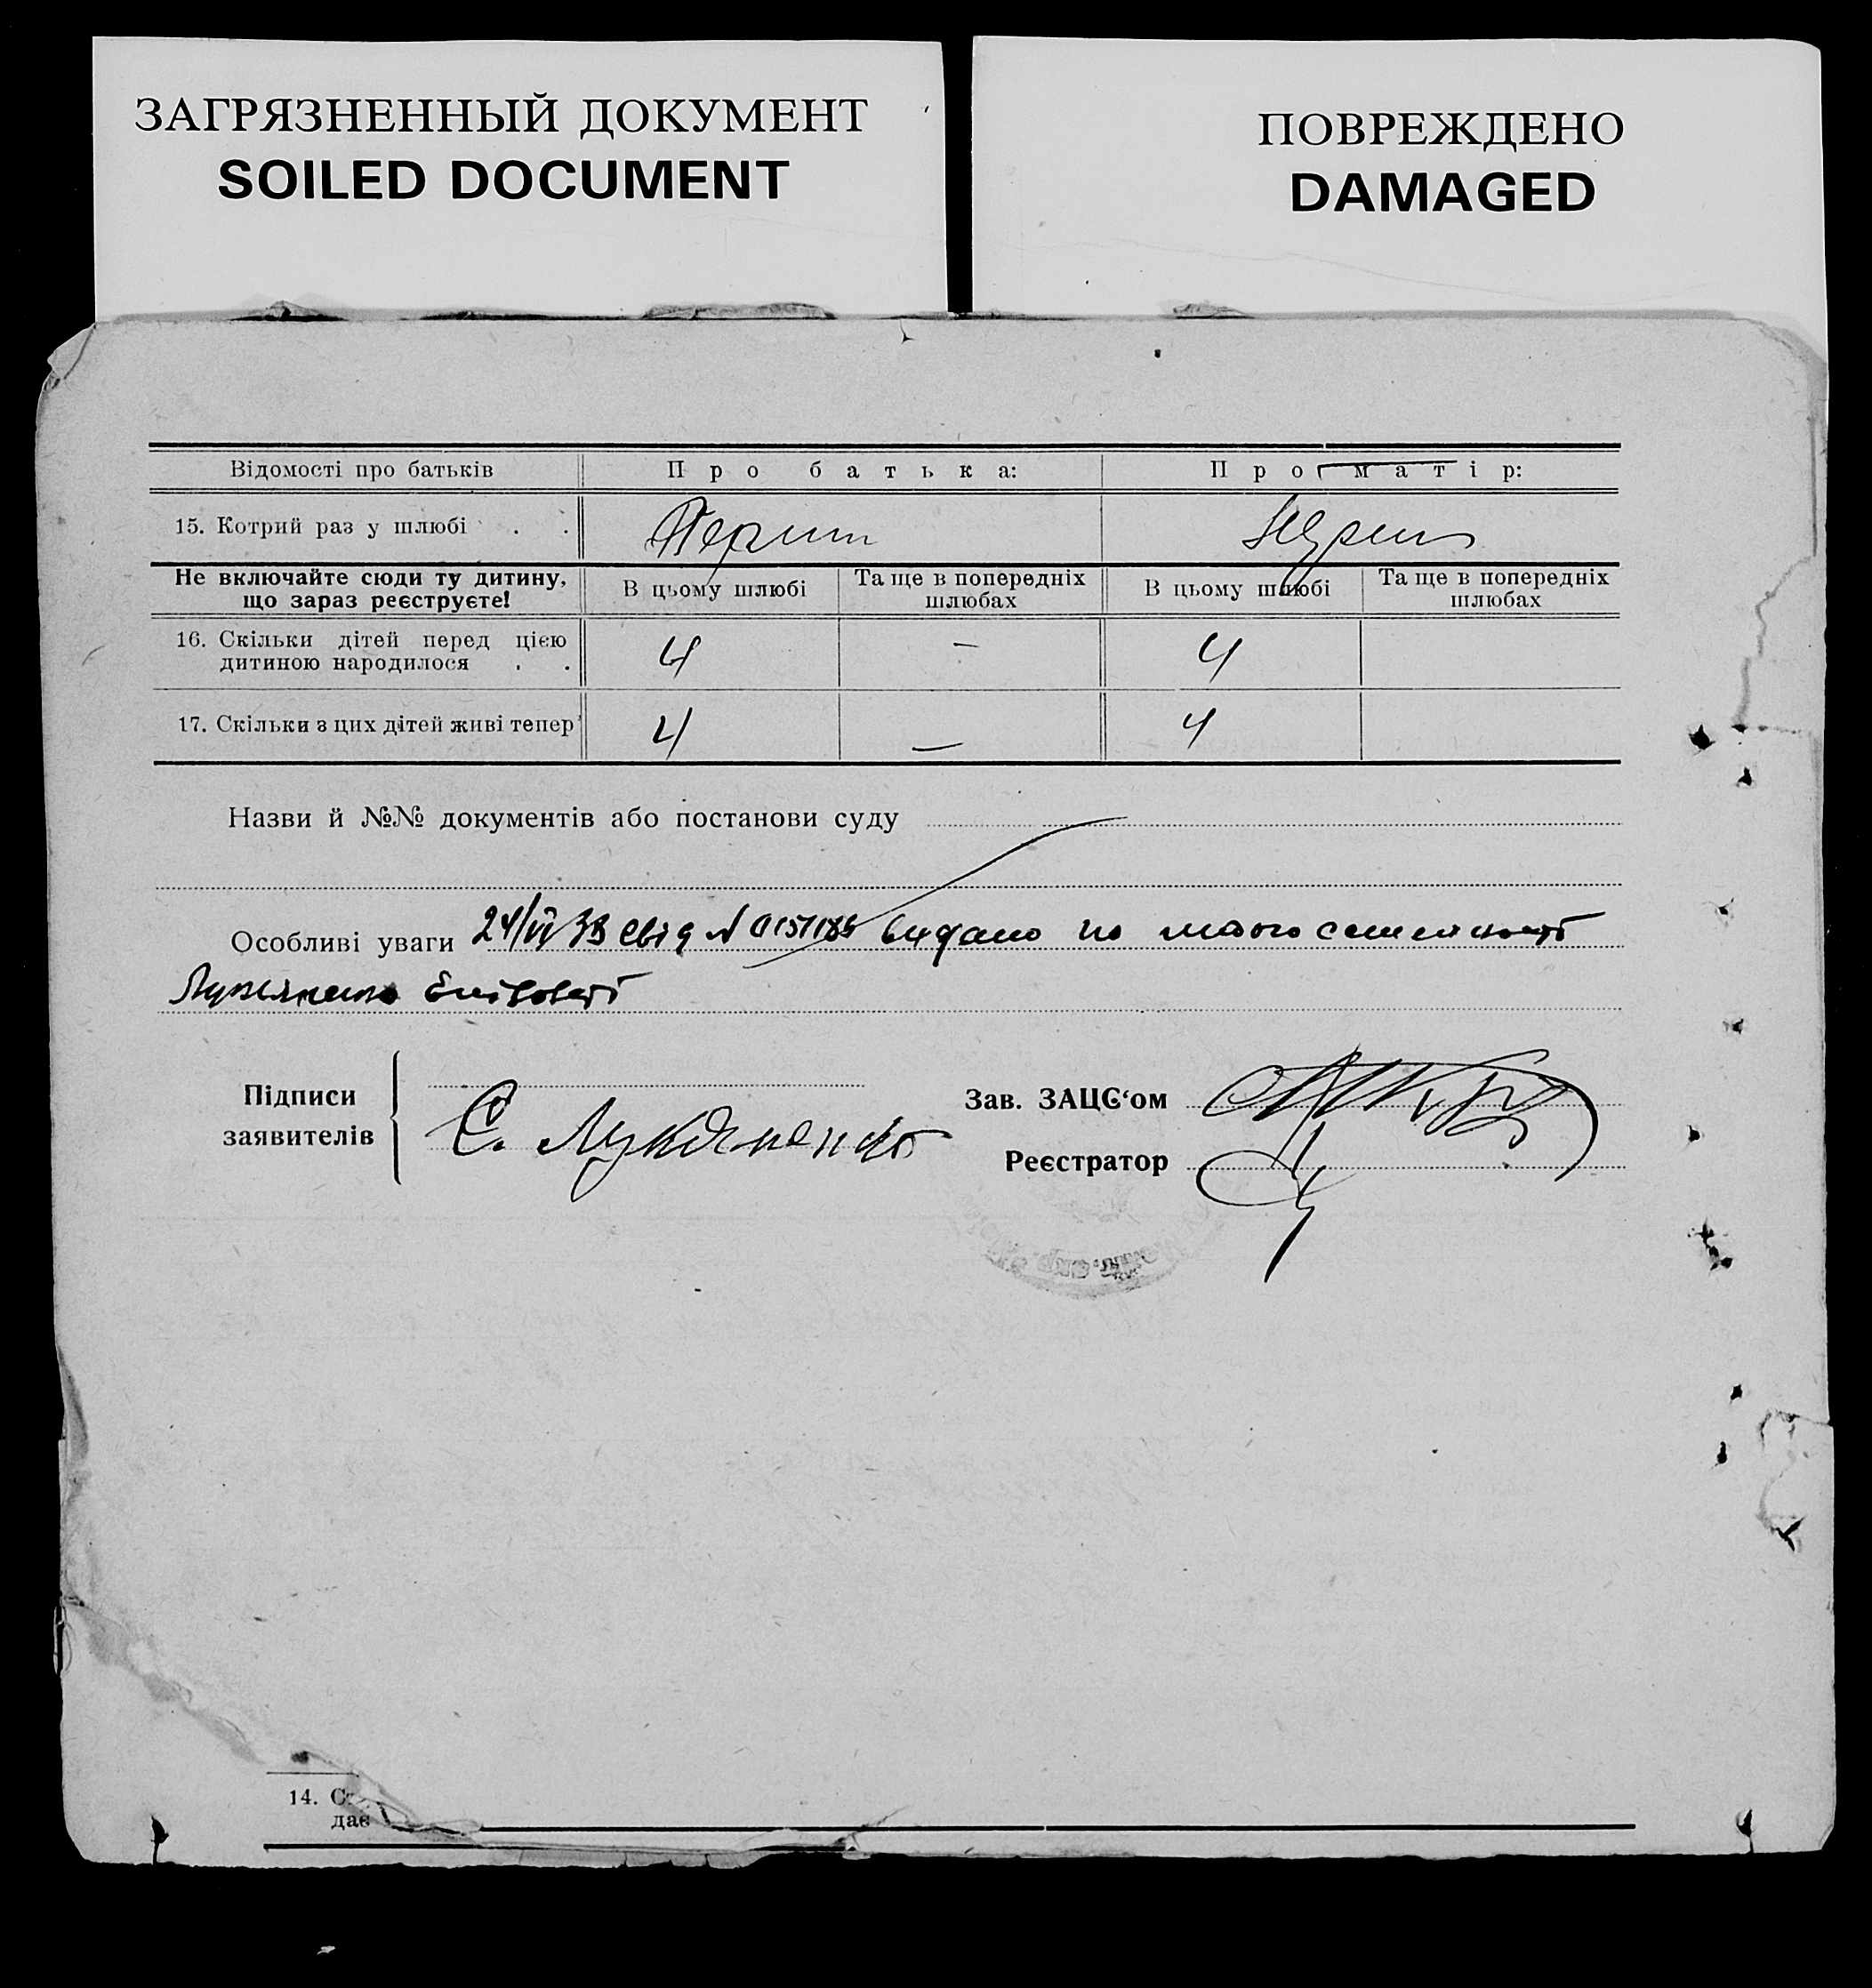 ЗАГРЯЗНЕННЫЙ ДОКУМЕНТ
SOILED DOCUMENT
ПОВРЕЖДЕНО
DAMAGED
Відомості про батьків Про батька: Про матір:
15. Котрий раз у шлюбі . . Перший
Не включайте сюди ту дитину, що зараз реєструєте! В цьому шлюбі Та ще в попередніх шлюбах В цьому шлюбі Та ще в попередніх шлюбах
16. Скільки дітей перед цією
дитиною народилося . . 4 – 4
17. Скільки з цих дітей живі тепер 4 — 4
Назви й №№ документів або постанови суду
Особливі уваги видано по
Підписи
заявителів
Є. Лукяненко
Зав. ЗАЦС‘ом
Реєстратор
14.
дає